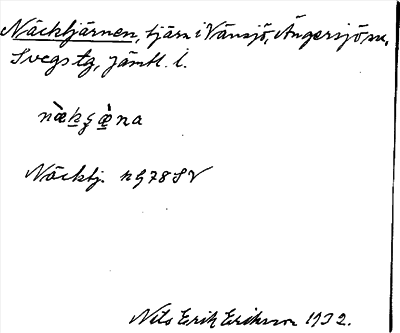 Näcktjärnen, tjärn i Vänsjö, Ängersjö sn,
Svegs tg, Jämtl. l.
næ̀kʂæ̀na
Näcktj. h978SV
Nils Erik Eriksson 1932.